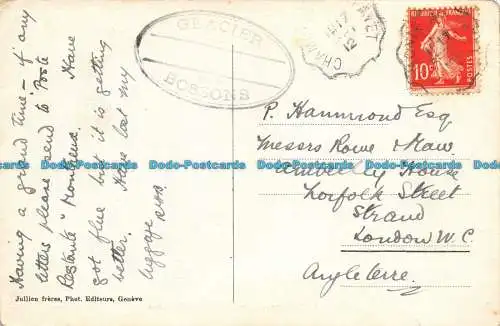 GLACIER
BOSSONS
Having a grand time – if any
letters please send to Poste
Restante "Montana. Have
got flue but it is getting
better. Have lost my
luggage
Jullien frères, Phot. Editeurs, Genève
RÉPUBLIQUE FRANÇAISE
10c
POSTES
P. Hammond Esq.
Messrs Rowe & Maw
Amberley House
Norfolk Street
Strand
London W.C.
Angleterre.
Dodo-Postcards Dodo-Postcards Dodo-Postcards
Dodo-Postcards Dodo-Postcards Dodo-Postcards